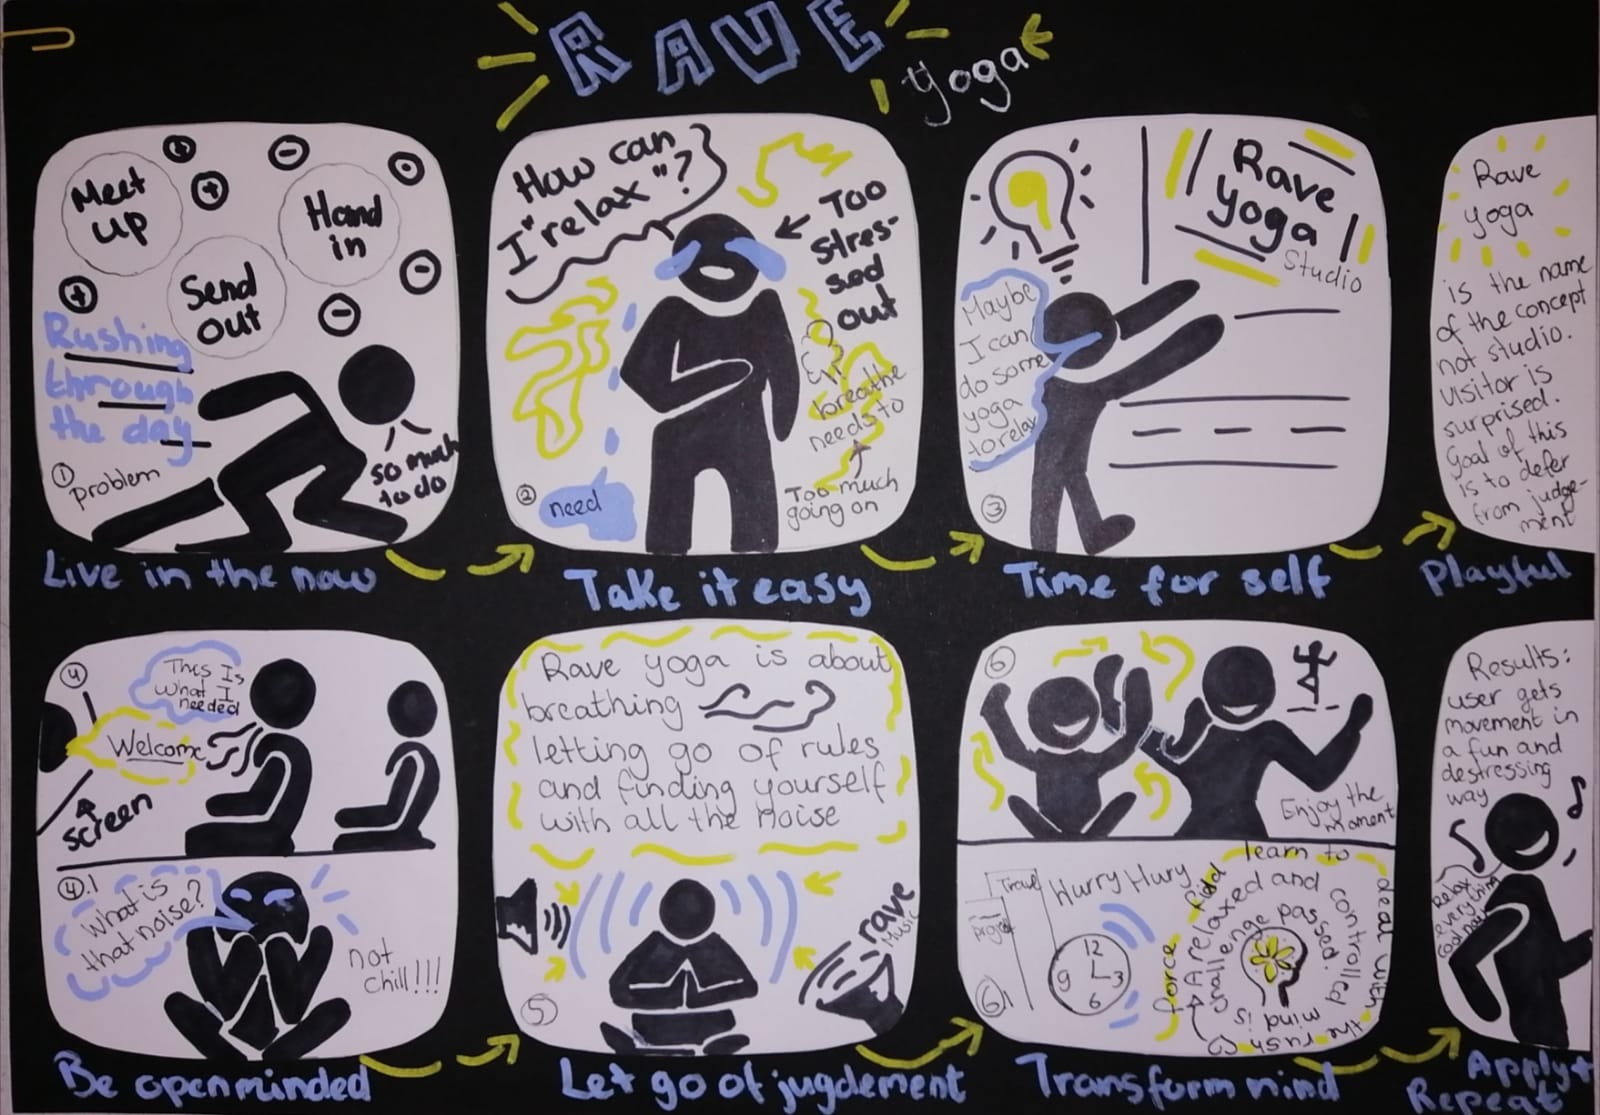 RAVE
yoga
Meet
up
Hand
in
Send
out
Rushing
through
the day
so much
to do
1
problem
Live in the now
How can
I "relax"?
Too
stres-
sed
out
breathe
needs to
Too much
going on
2
need
Take it easy
Rave
yoga
Studio
Maybe
I can
do some
yoga
to relax
3
Time for self
Rave
yoga
is the name
of the concept
not studio.
visitor is
surprised.
Goal of this
is to defer
from judge-
ment
Playful
4
This Is
what I
needed
Welcome
screen
4.1
What is
that noise?
not
chill!!!
Be openminded
Rave yoga is about
breathing
letting go of rules
and finding yourself
with all the noise
rave
Music
5
Let go of jugdement
6
Enjoy the
moment
Travel
project
Hurry Hury
12
9 3
6
6.1
force field
learn to deal with the rush
A relaxed and controlled mind is
challenge passed.
Transform mind
Results:
user gets
movement in
a fun and
destressing
way
Relax
everything
Apply +
Repeat